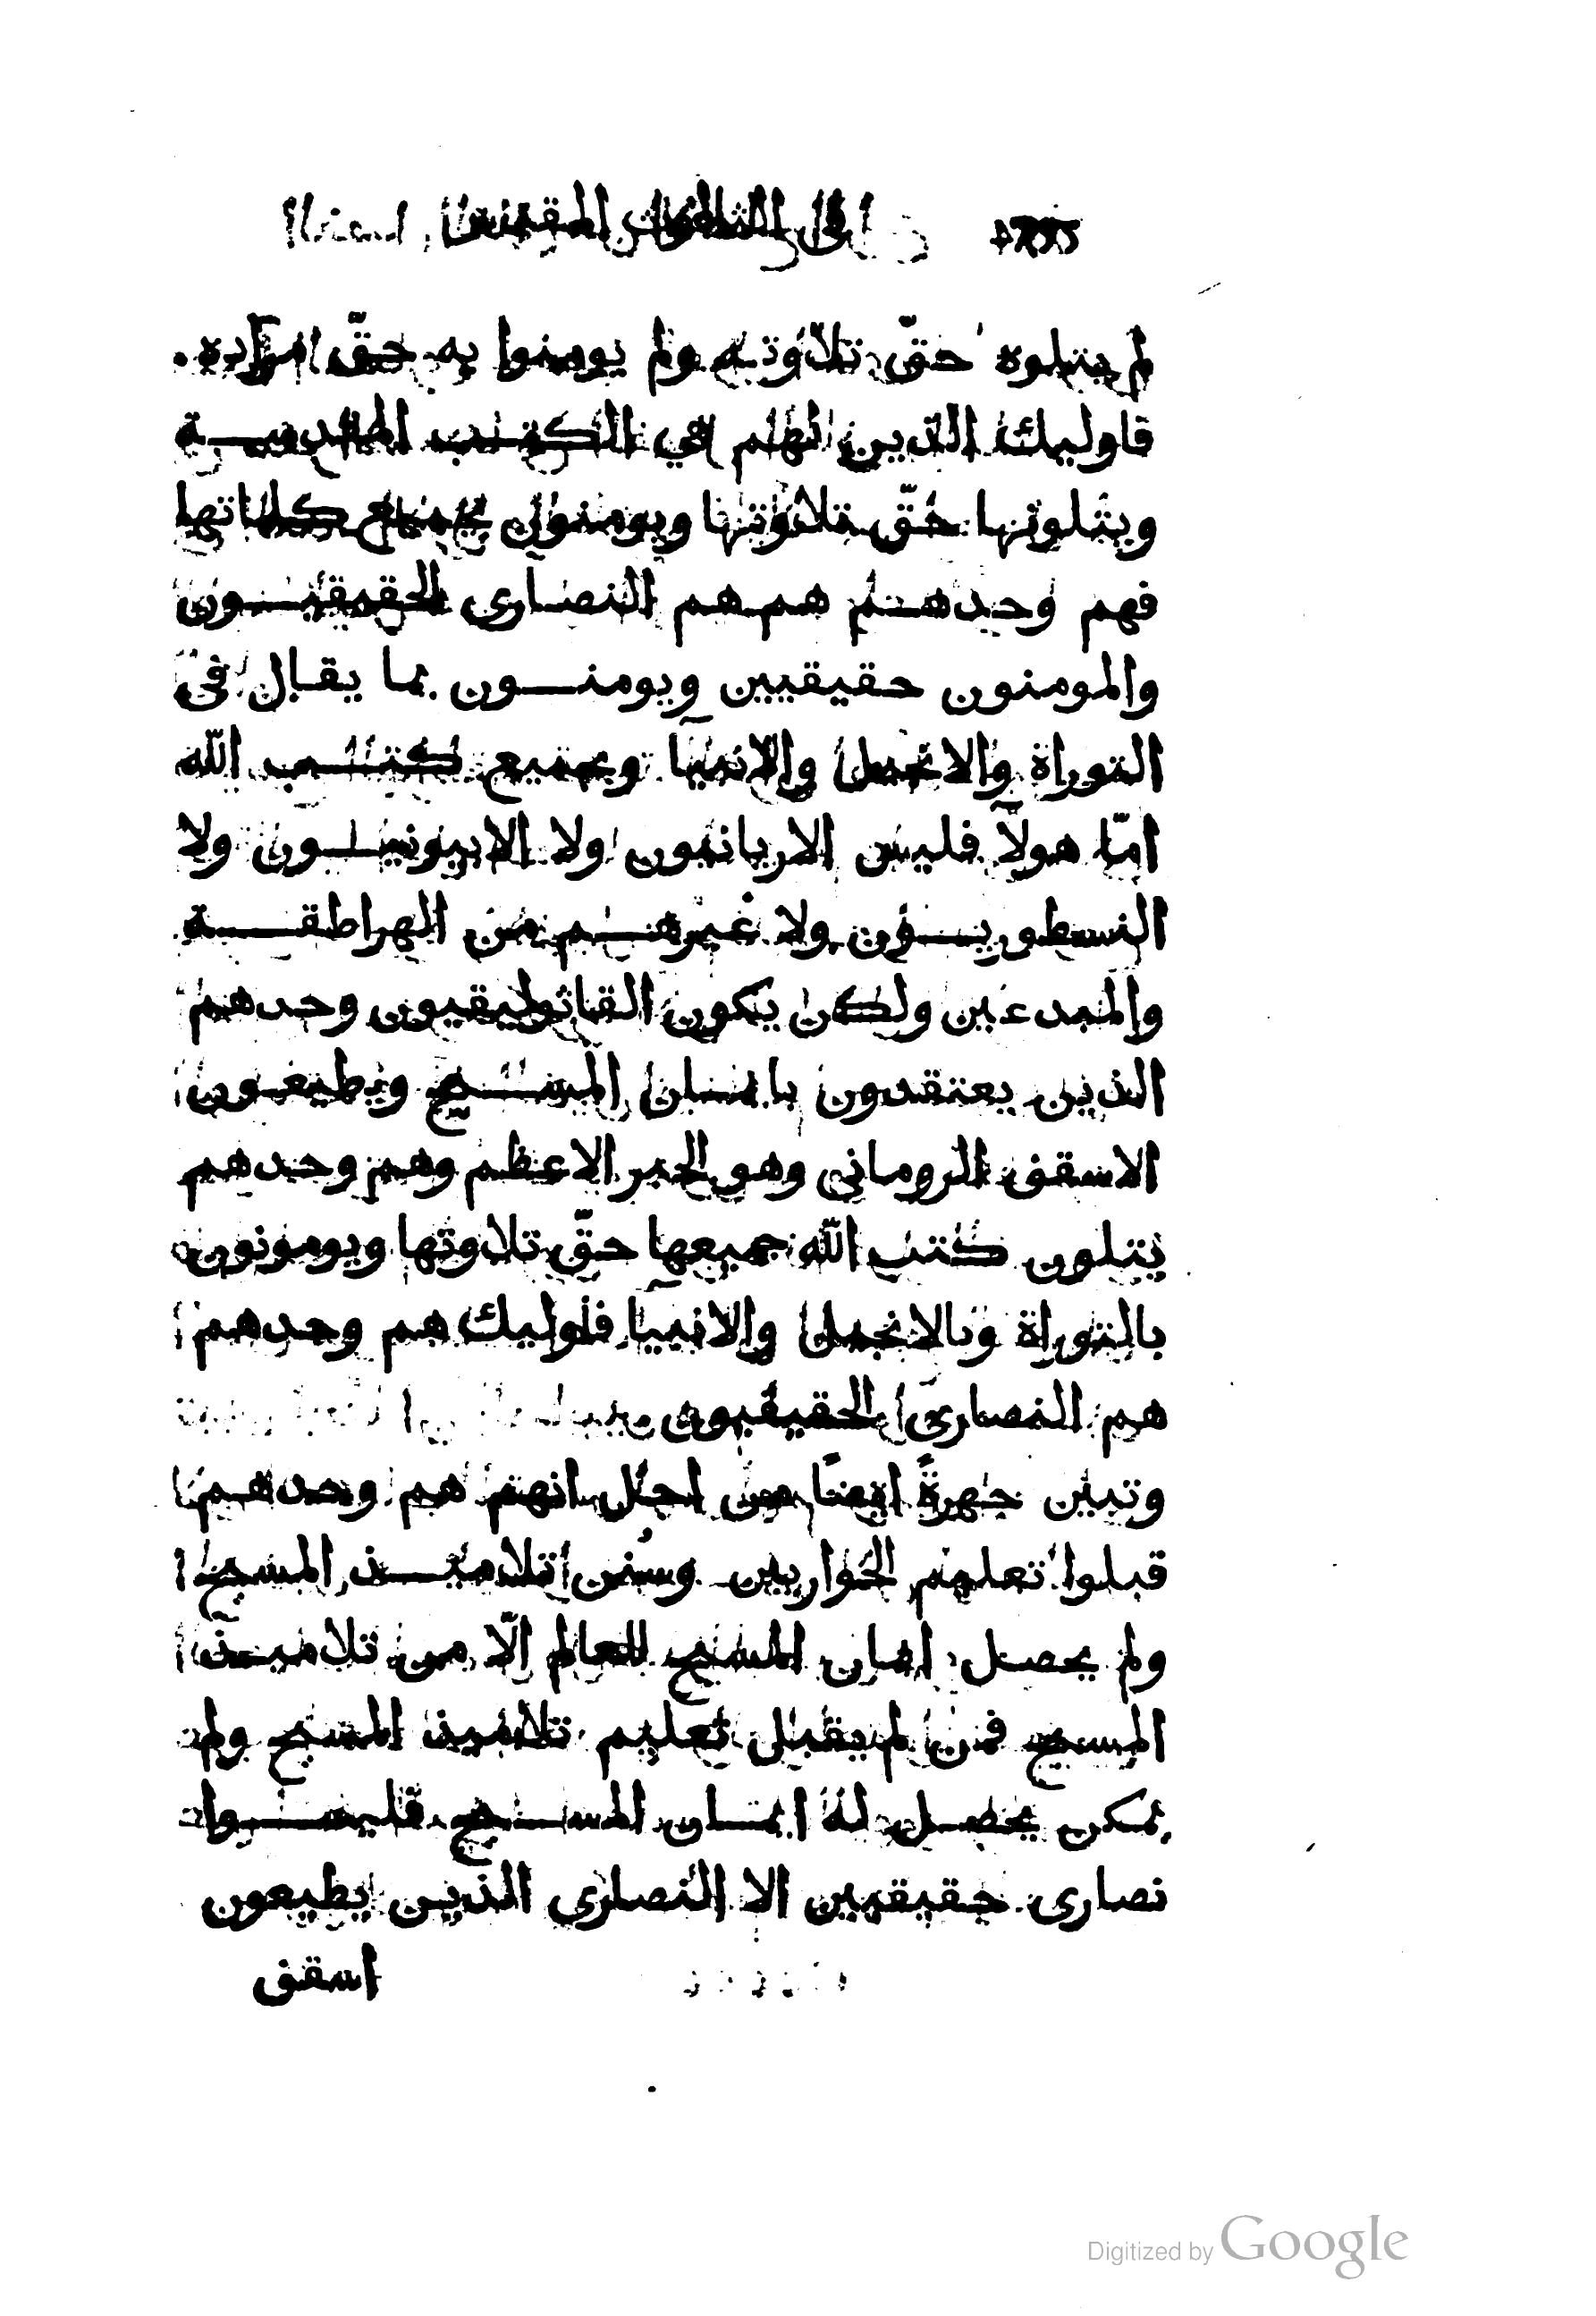 لم يتلوه حقّ تلاوته ولم يومنوا به حقّ
فاوليك الذين لهم في الكتب المقدسة
ويتلونها حقّ تلاوتها ويومنون بجميع كلماتها
فهم وحدهم هم هم النصارى الحقيقيون
والمومنون حقيقيين ويومنون بما يقال فى
التوراة والانجيل والانبيآ وبجميع كتب اللّه
امّا هولآ فليس الاريانيون ولا الابيونيون ولا
النسطوريون ولا غيرهم من الهراطقة
والمبدعين ولكن يكون القاثوليقيون وحدهم
الذين يعتقدون بايمان المسيح ويطيعون
الاسقف الرومانى وهو الحبر الاعظم وهم وحدهم
يتلون كتب اللّه جميعها حقّ تلاوتها ويومونون
بالتوراة وبالانجيل والانبيآ فاوليك هم وحدهم
هم النصارى الحقيقيون
وتبين جهرةً ايضًا من اجل انهم هم وحدهم
قبلوا تعليم الحواريين وسُنن تلاميذ المسيح
ولم يحصل ايمان المسيح للعالم الّا من تلاميذ
المسيح فمن لم يقبل تعليم تلاميذ المسيح ولم
يمكن يحصل له ايمان المسيح فليسوا
نصارى حقيقيين الا النصارى الذين يطيعون
اسقف
Digitized by Google